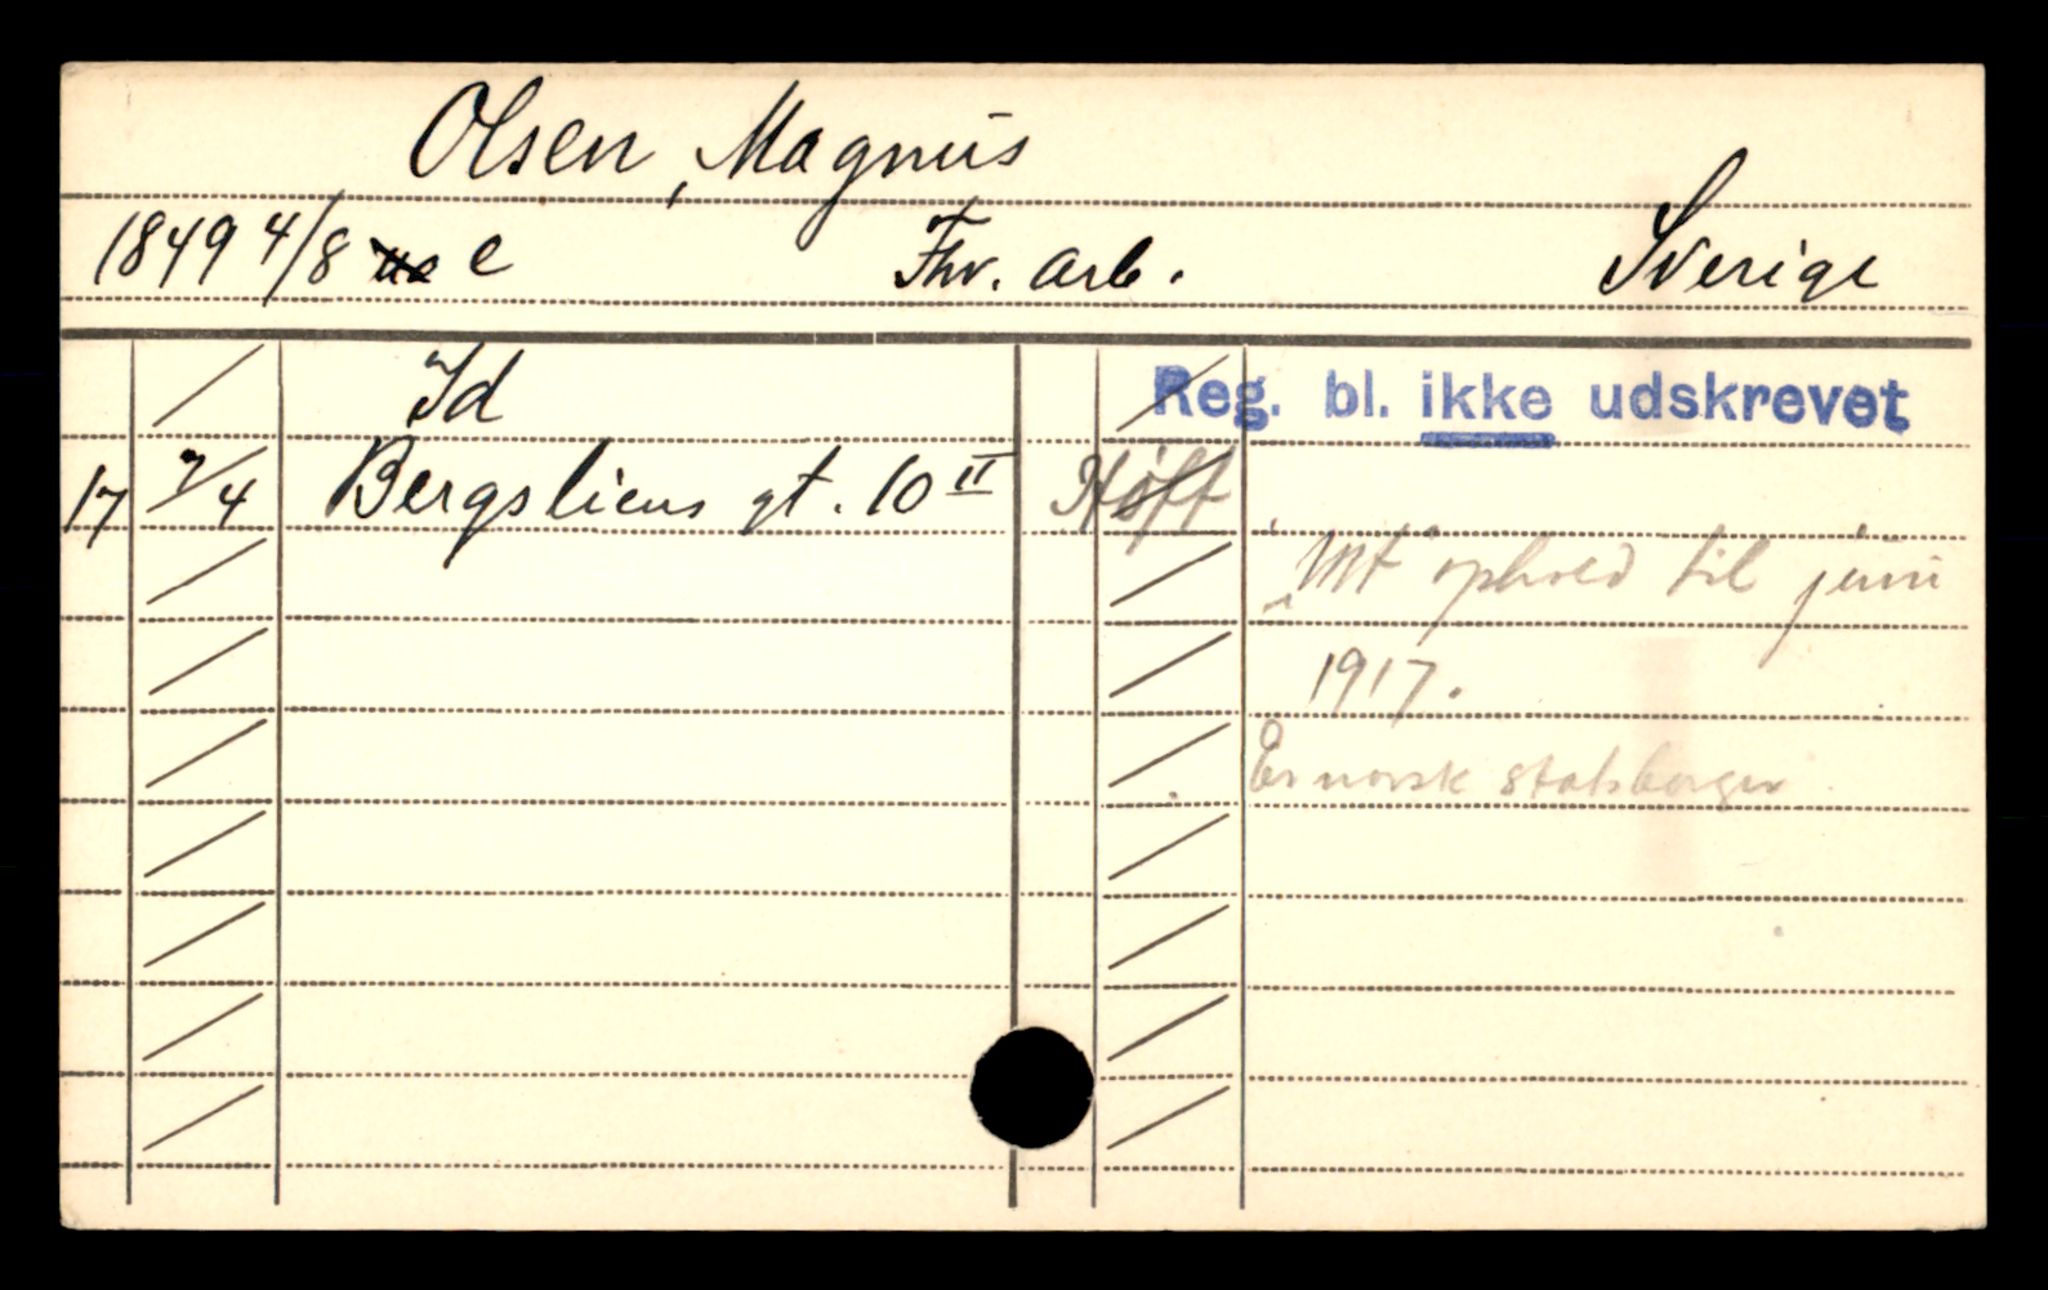 Olsen, Magnus
1849 4/8 e Fhv. arb. Sverige
Id Reg. bl. ikke udskrevet
17 7/4 Bergsliens gt. 10 II Høff
ophold til juni
1917.
Er norsk statsborger